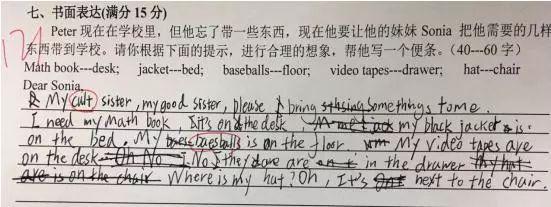 七、书面表达(满分 15 分)
Peter 现在在学校里，但他忘了带一些东西，现在他要让他的妹妹 Sonia 把他需要的几样
东西带到学校。请你根据下面的提示，进行合理的想象，帮他写一个便条。(40---60 字)
Math book---desk; jacket---bed; baseballs---floor; video tapes---drawer; hat---chair
Dear Sonia,
My cult sister, my good sister, please bring somethings to me.
I need my math book, It's on the desk, my black jacket is
on the bed. My baesballs is on the floor. My video tapes are
on the desk No, they are in the drawer
Where is my hat? Oh, It's next to the chair.